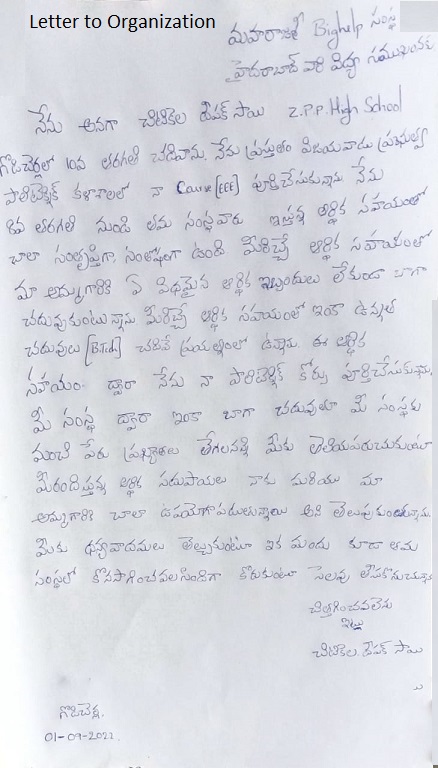 Letter to Organization
మహారాజశ్రీ Bighelp సంస్థ
హైదరాబాద్ వారి దివ్య సముఖంనకు
నేను అనగా చిటికెల దీపక్ సాయి Z.P.P. High School
గొడిచెర్లలో 10వ తరగతి చదివాను. నేను ప్రస్తుతం విజయవాడ ప్రభుత్వ
పాలిటెక్నిక్ కళాశాలలో నా Course [EEE] పూర్తిచేసుకున్నాను. నేను
8వ తరగతి నుండి తమ సంస్థవారు ఇస్తున్న ఆర్థిక సహాయంతో
చాలా సంతృప్తిగా, సంతోషంగా ఉంది మీరిచ్చే ఆర్థిక సహాయంతో
మా అమ్మగారికి ఏ విధమైన ఆర్థిక ఇబ్బందులు లేకుండా బాగా
చదువుకుంటున్నాను మీరిచ్చే ఆర్థిక సహాయంలో ఇంకా ఉన్నత
చదువులు [B.Tech] చదివే ప్రయత్నంలో ఉన్నాను. ఈ ఆర్థిక
సహాయం ద్వారా నేను నా పాలిటెక్నిక్ కోర్సు పూర్తిచేసుకున్నాను.
మీ సంస్థ ద్వారా ఇంకా బాగా చదువుతూ మీ సంస్థకు
మంచి పేరు ప్రఖ్యాతలు తేగలనని మీకు తెలియపరుచుకుంటూ
మీరందిస్తున్న ఆర్థిక సదుపాయాలు నాకు మరియు మా
అమ్మగారికి చాలా ఉపయోగపడుతున్నాయి అని తెలుపుకుంటున్నాను.
మీకు ధన్యవాదములు తెల్పుకుంటూ ఇక ముందు కూడా తమ
సంస్థలో కొనసాగించవలసిందిగా కోరుకుంటూ సెలవు తీసుకొనుచున్నాను
చిత్తగించవలెను
ఇట్లు
చిటికెల. దీపక్ సాయి
గొడిచెర్ల,
01-09-2022.